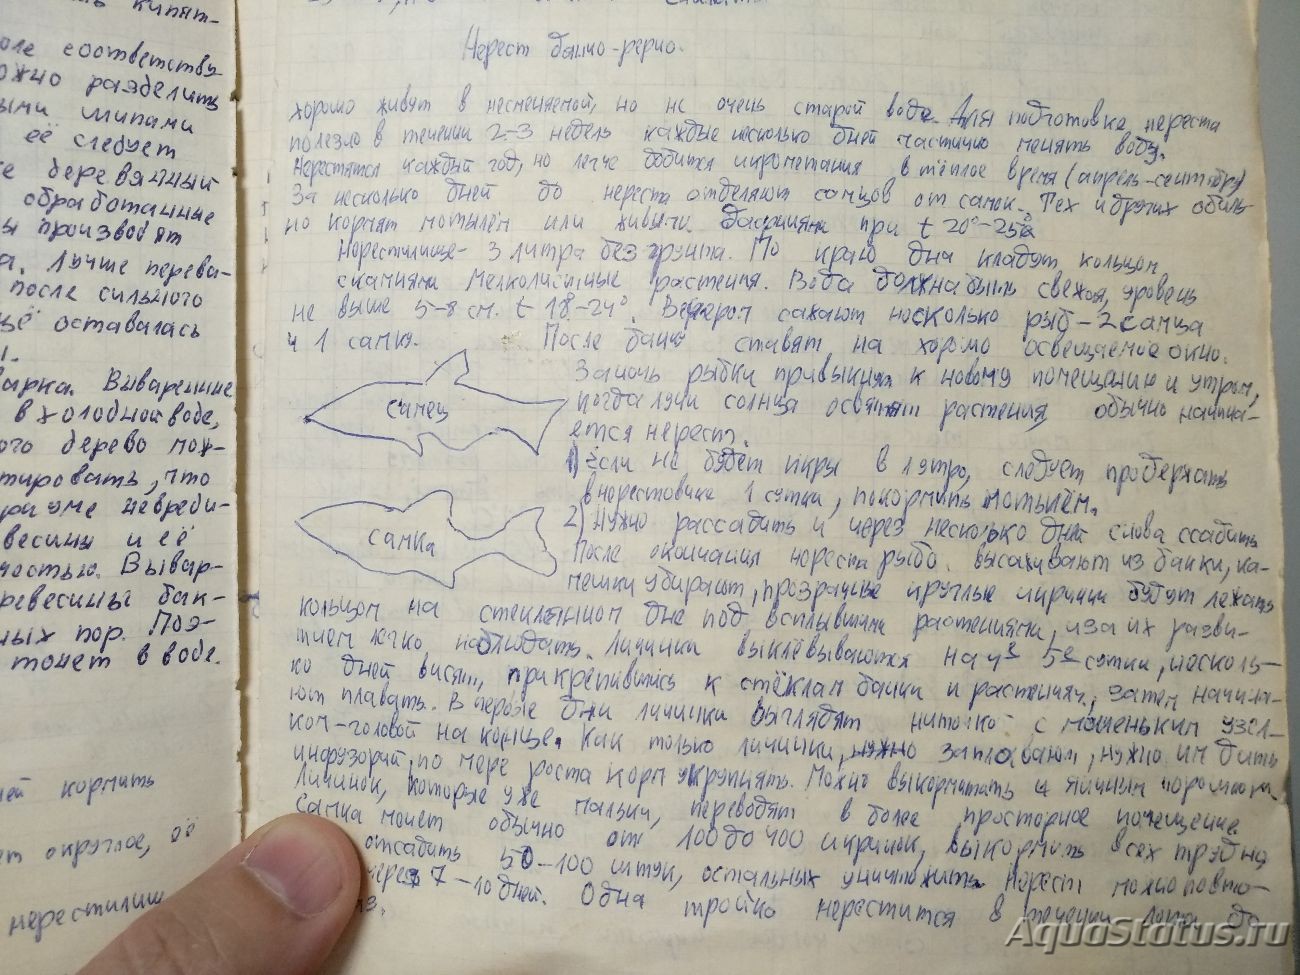 кипят-
соответству-
разделить
ыми шипами
её следует
деревянный
обработанные
производят
а. Лучше перева-
после сильного
оставалась
варка. Вываренные
в холодной воде,
ого дерево мож-
тировать, что
весины и её
ностью. Вывар-
ревесины бак-
ных пор. Поэ-
тонет в воде.
кормить
округлое, её
нерестилищ
Нерест данио-рерио.
хорошо живят в несменяемой, но не очень старой воде. Для подготовке нереста
полезно в течении 2-3 недель каждые несколько дней частично менять воду.
Нерестятся каждый год, но легче добится икрометания в тёплое время (апрель-сентябрь)
За несколько дней до нереста отделяют самцов от самок. Тех и других обиль-
но кормят мотылём или живыми дафниями при t 20°-25°
Нерестилище- 3 литра без грунта. По краю дна кладут кольцом
с камнями мелколистные растения. Вода должна быть свежая, уровень
не выше 5-8 см. t 18-24°. Вечером сажают несколько рыб - 2 самца
и 1 самка. После банку ставят на хорошо освещаемое окно.
За ночь рыбки привыкнут к новому помещению и утром,
когда лучи солнца осветят растения обычно начина-
ется нерест.
1) если не будет икры в 1 утро, следует продержать
в нерестовике 1 сутки, покормить мотылём.
2) Нужно рассадить и через несколько дней снова ссадить
После окончания нереста рыбо. высаживают из банки, ка-
мешки убирают, прозрачные круглые икринки будут лежать
кольцом на стеклянном дне под всплывшими растениями, и за их разви-
тием легко, наблюдать. Личинки выклёвываются на 4е 5е сутки, несколь-
ко дней висят, прикрепившись к стёклам банки и растениям, затем начина-
ют плавать. В первые дни личинки выглядят ниточкой с маленьким узел-
ком-головой на конце. Как только личинки, нужно заплавают, нужно им дать
инфузорий, по мере роста корм укрупнять. Можно выкормить и яичным порошком
Личинок, которые уже мальки, переводят в более просторное помещение.
Самка мечет обычно от 100 до 400 икринок, выкормить всех трудно,
отсадить 50-100 штук, остальных уничтожить. Нерест можно повто-
через 7-10 дней. Одна тройка нерестится в течении лета до
аз.
самец
самка
AquaStatus.ru